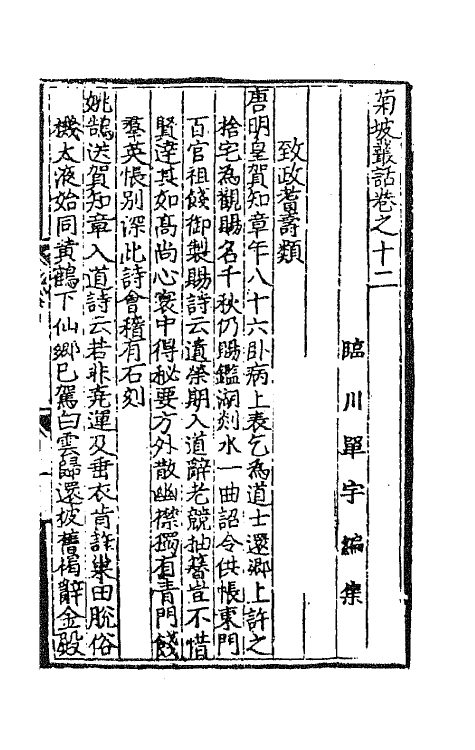 菊坡叢話卷之十二
臨川單宇編集
致政耆壽類
唐明皇賀知章年八十六卧病上表乞為道士還鄉上許之
捨宅為觀賜名千秋仍賜鑑湖剡水一曲詔令供帳東門
百官祖餞御製賜詩云遺榮期入道辭老競抽簪豈不惜
賢達其如髙尚心寰中得秘要方外散幽襟獨有青門餞
羣英悵别深此詩會稽有石刻
姚鵠送賀知章入道詩云若非堯運及垂衣肯許巢由脫俗
機太液始同黃鶴下仙鄉已駕白雲歸還披舊褐辭金殿